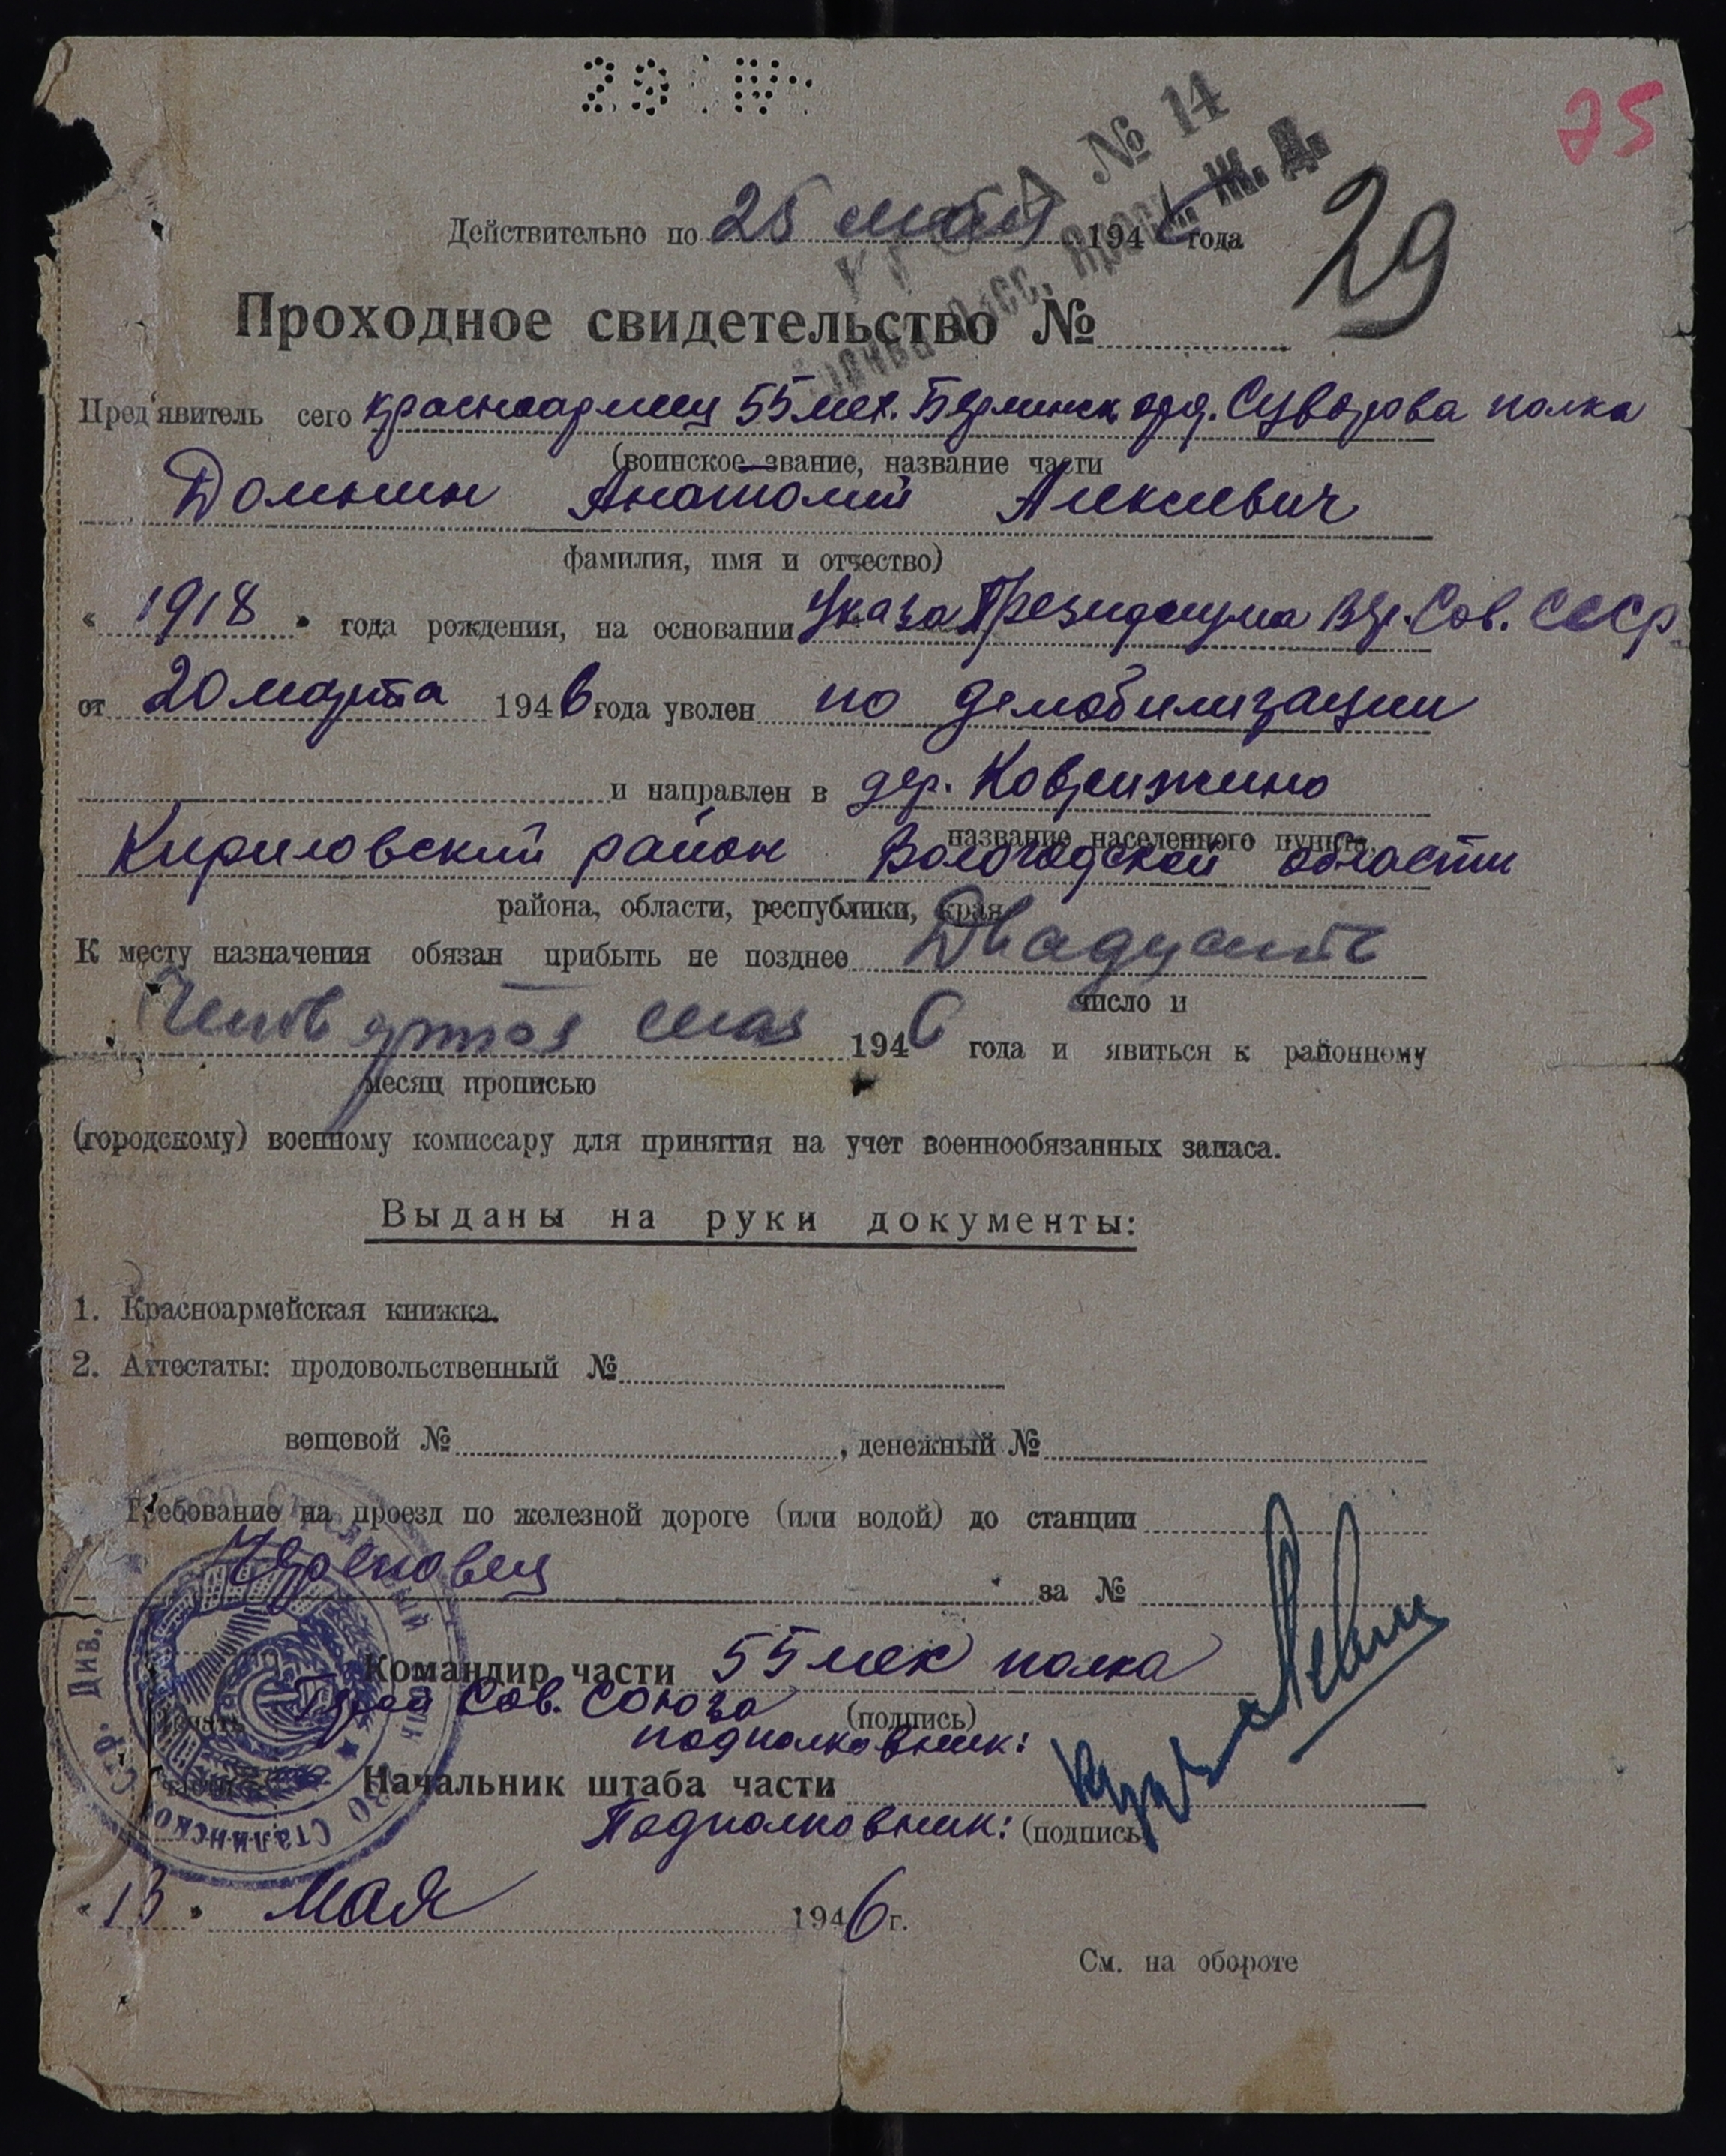 29 IV
25
№ 14
Ж. Д.
Действительно по 25 мая 1946 года
29
Проходное свидетельство №
Пред'явитель сего красноармеец 55 мех. Берлинск. орд. Суворова полка
(воинское звание, название части
Домнин Анатолий Алексеевич
фамилия, имя и отчество)
« 1918 » года рождения, на основании Указа Президиума Вер. Сов. СССР
от 20 марта 1946 года уволен по демобилизации
и направлен в дер. Коврижино
название населенного пункта,
Кириловский район Вологодской области
района, области, республики, края
К месту назначения обязан прибыть не позднее Двадцать
число и
мая 1946 года и явиться к районному
месяц прописью
(городскому) военному комиссару для принятия на учет военнообязанных запаса.
Выданы на руки документы:
1. Красноармейская книжка.
2. Аттестаты: продовольственный №
вещевой № , денежный №
Требование на проезд по железной дороге (или водой) до станции
Череповец за №
Командир части 55 мех полка
Герой Сов. Союза (подпись)
подполковник:
Начальник штаба части
Подполковник: (подпись)
« 13 » мая 1946 г.
См. на обороте